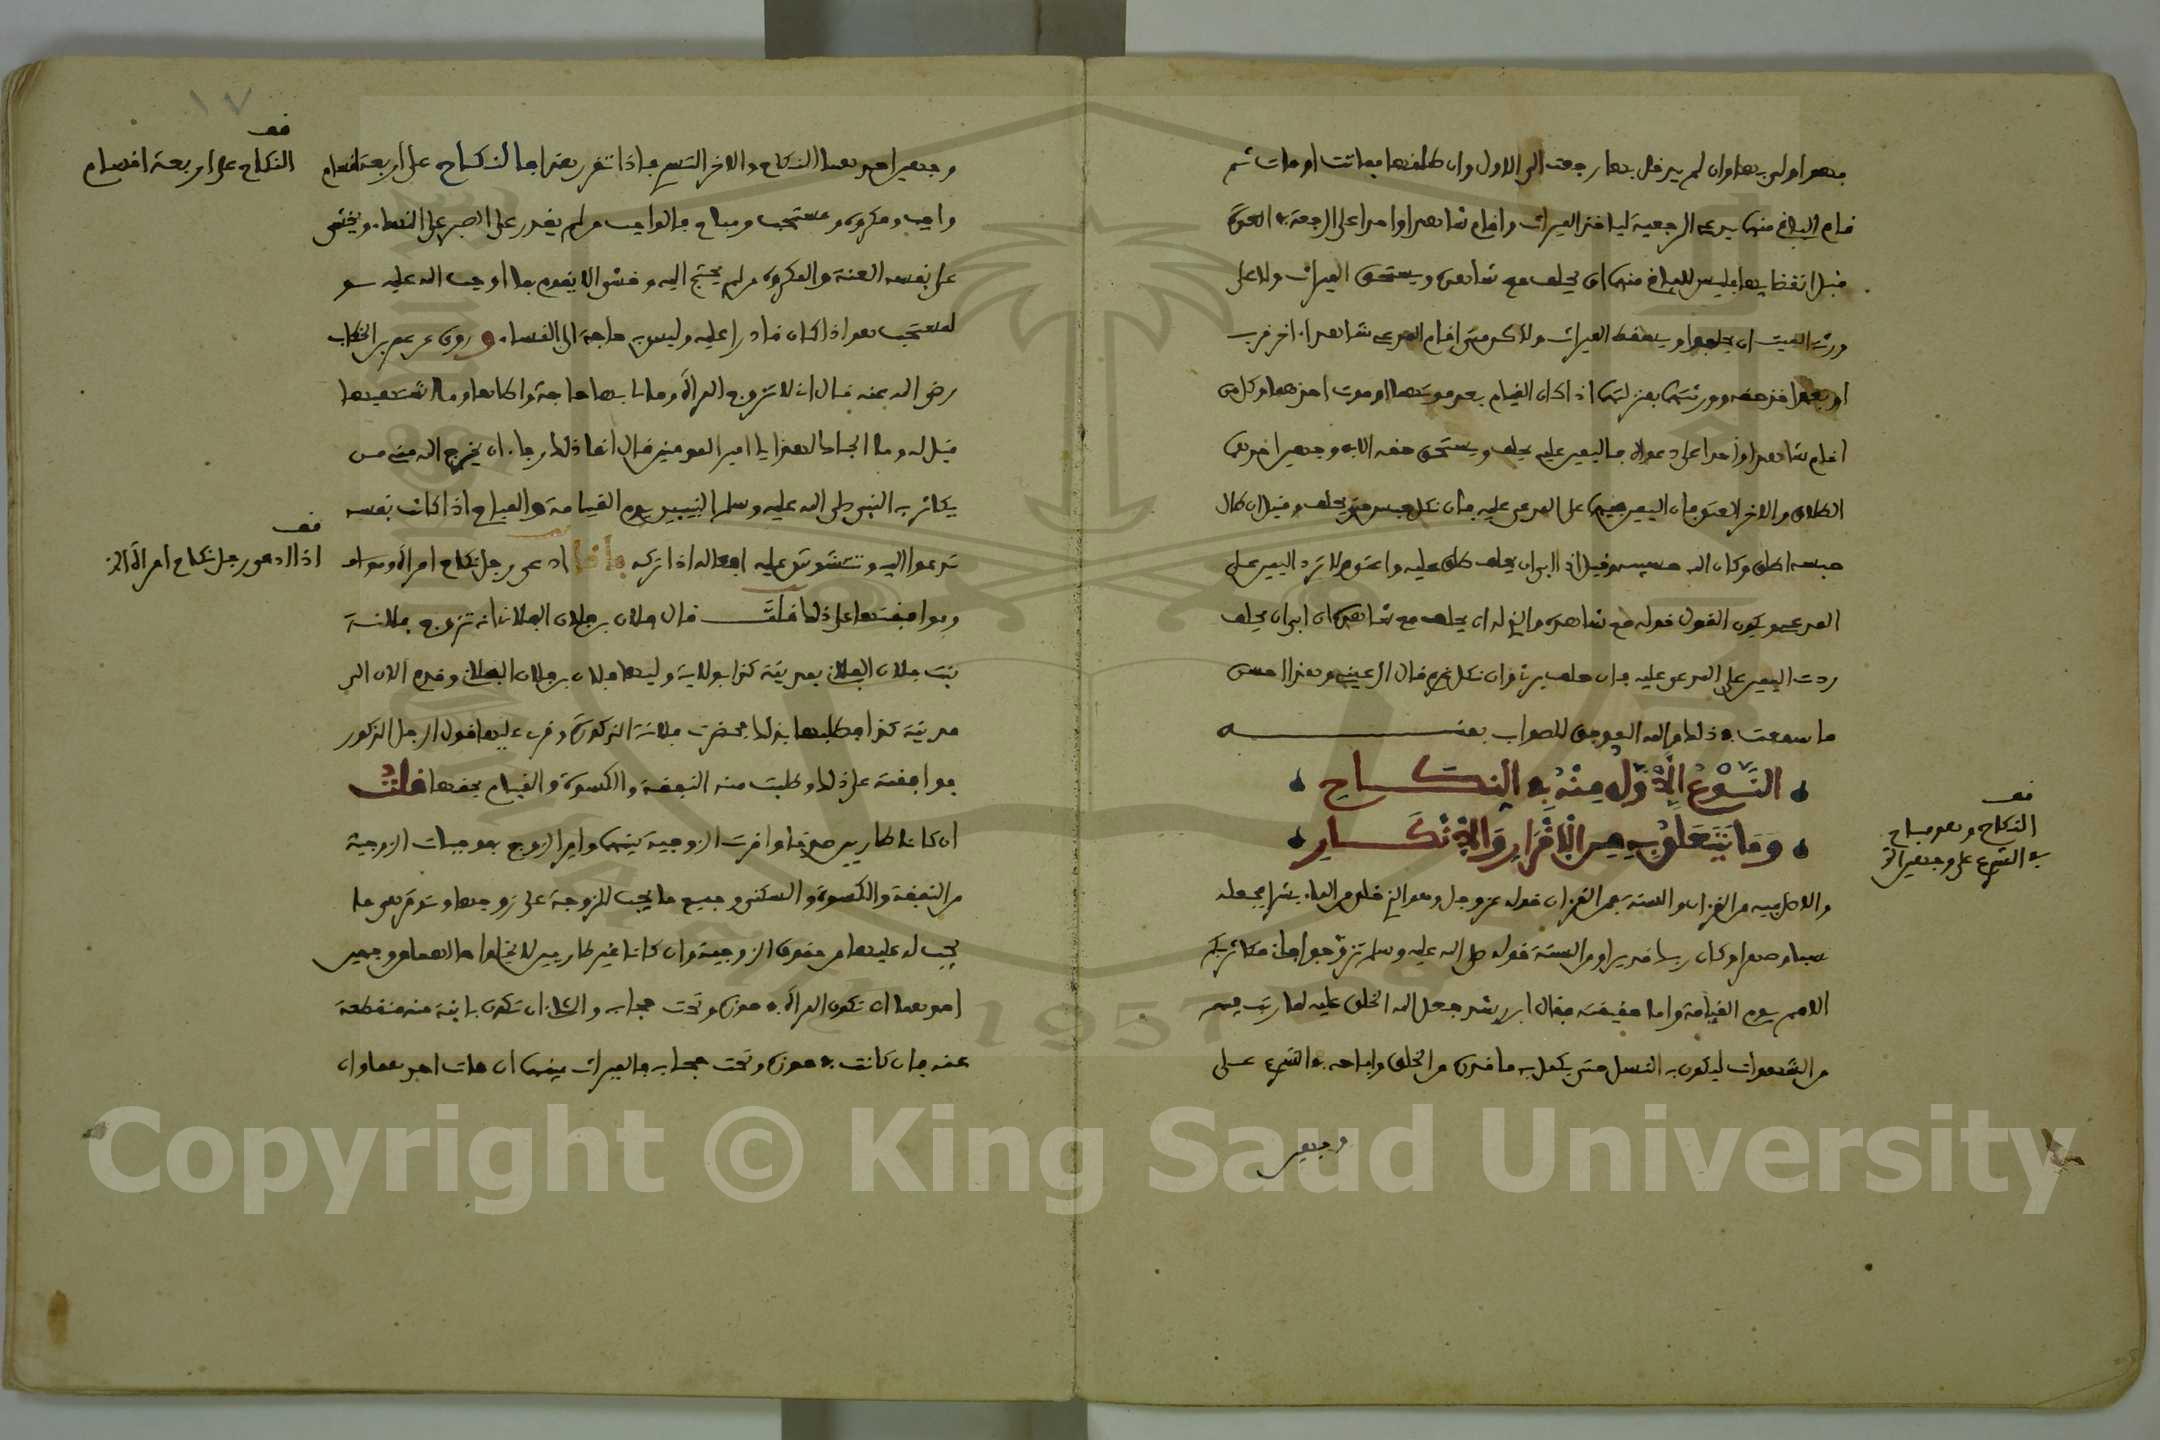 فهو اولى بها وان لم يدخل بها رجعت الى الاول وان طلقها فماتت او مات ثم
قام الباقي منهما يدعي الرجعية لياخذ الميراث واقام شاهدا واحدا على الرجعة في العدة
قبل انقضايها فليس للباقي منهما ان يحلف مع شاهده ويستحق الميراث ولا على
ورثة الميت ان يحلفوا ويسقط الميراث ولاكن متى اقام المدعي شاهدا اخر قرب
او بعد اخذ حقه وورثتهما بمنزلتهما اذا كان القيام بعد موتهما او موت احدهما وكل من
اقام شاهدا واحدا على دعواه فاليمين عليه يحلف ويستحق حقه الا في وجهين احدهما
الطلاق والاخر العتق فان اليمين فيهما على المدعى عليه فان نكل حبس حتى يحلف وقيل ان طال
حبسه اطلق وكان الله حسيبه وقيل اذا ابى ان يحلف طلق عليه واعتق ولا ترد اليمين على
المدعي ويكون القول قوله مع شاهده والذي له ان يحلف مع شاهده ان ابى ان يحلف
ردت اليمين على المدعى عليه فان حلف برئ وان نكل غرم قال الرعيني وهذا احسن
ما سمعت في ذلك والله الموفق للصواب بمنه
النوع الاول منه في النكاح
وما يتعلق به من الاقرار والانكار
والاصل فيه من القران والسنة فمن القران قوله عز وجل وهو الذي خلق من الماء بشرا فجعله
نسبا وصهرا وكان ربك قديرا ومن السنة قوله صلى الله عليه وسلم تزوجوا فاني مكاثر بكم
الامم يوم القيامة واما حقيقته فقال ابن رشد جعل الله الخلق عليه لما ركب فيهم
من الشهوات ليكون به النسل حتى يكمل به ما قدره من الخلق واباحه في الشرع على
وجهين
قف
النكاح وهو مباح
في الشرع على وجهين الخ
١٧
وجهين احدهما النكاح والاخر التسري فاذا تقرر هذا فالنكاح على اربعة اقسام
واجب ومكروه ومستحب ومباح فالواجب من لم يقدر على الصبر على النساء ويخشى
على نفسه العنة والمكروه من لم يحتج اليه وخشي الا يقوم بما اوجب الله عليه
لمستحب هو اذا كان قادرا عليه وليس به حاجة الى النساء وروي عن عمر بن الخطاب
رضي الله عنه قال اني لاتزوج المراة ومالي بها حاجة واطاها وما اشتهيها
قيل له وما الجاك لهذا يا امير المومنين قال انما ذلك رجاء ان يخرج الله مني من
يكاثر به النبي صلى الله عليه وسلم النبيين يوم القيامة والمباح اذا كانت نفسه
تدعوا اليه وتتشوش عليه افعاله اذا تركه فاذا ادعى رجل نكاح امراة
وموافقتها على ذلك قلت قال فلان بن فلان الفلاني انه تزوج فلانة
بنت فلان الفلاني بمدينة كذا بولاية وليها فلان بن فلان الفلاني وقدم الان الى
مدينة كذا فطلبها بذلك فحضرت فلانة المذكورة وقرئ عليها قول الرجل المذكور
فوافقته على ذلك وطلبت منه النفقة والكسوة والقيام بحقها قلت
ان كانا طاريين صدقا واقرت الزوجية بينهما وامر الزوج بموجبات الزوجية
من النفقة والكسوة والسكنى وجميع ما يجب للزوجة على زوجها وتومر هي بما
يجب له عليها من حقوق الزوجية وان كانا غير طاريين لا يخلوا حالهما من وجهين
احدهما ان تكون المراة في حوزه وتحت حجابه والثاني ان تكون باينة منه منقطعة
عنه فان كانت في حوزه وتحت حجابه فالميراث بينهما ان مات احدهما وان
قف
النكاح على اربعة اقسام
قف
اذا ادعى رجل نكاح امراة الخ
1957
Copyright © King Saud University